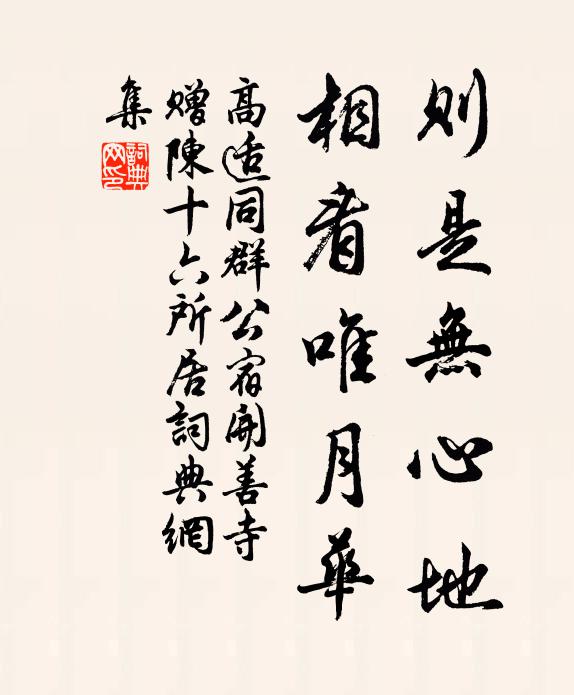 则是無心地
相看唯月華
高适同群公宿開善寺
赠陳十六所居詞典網
集
詞典
网印